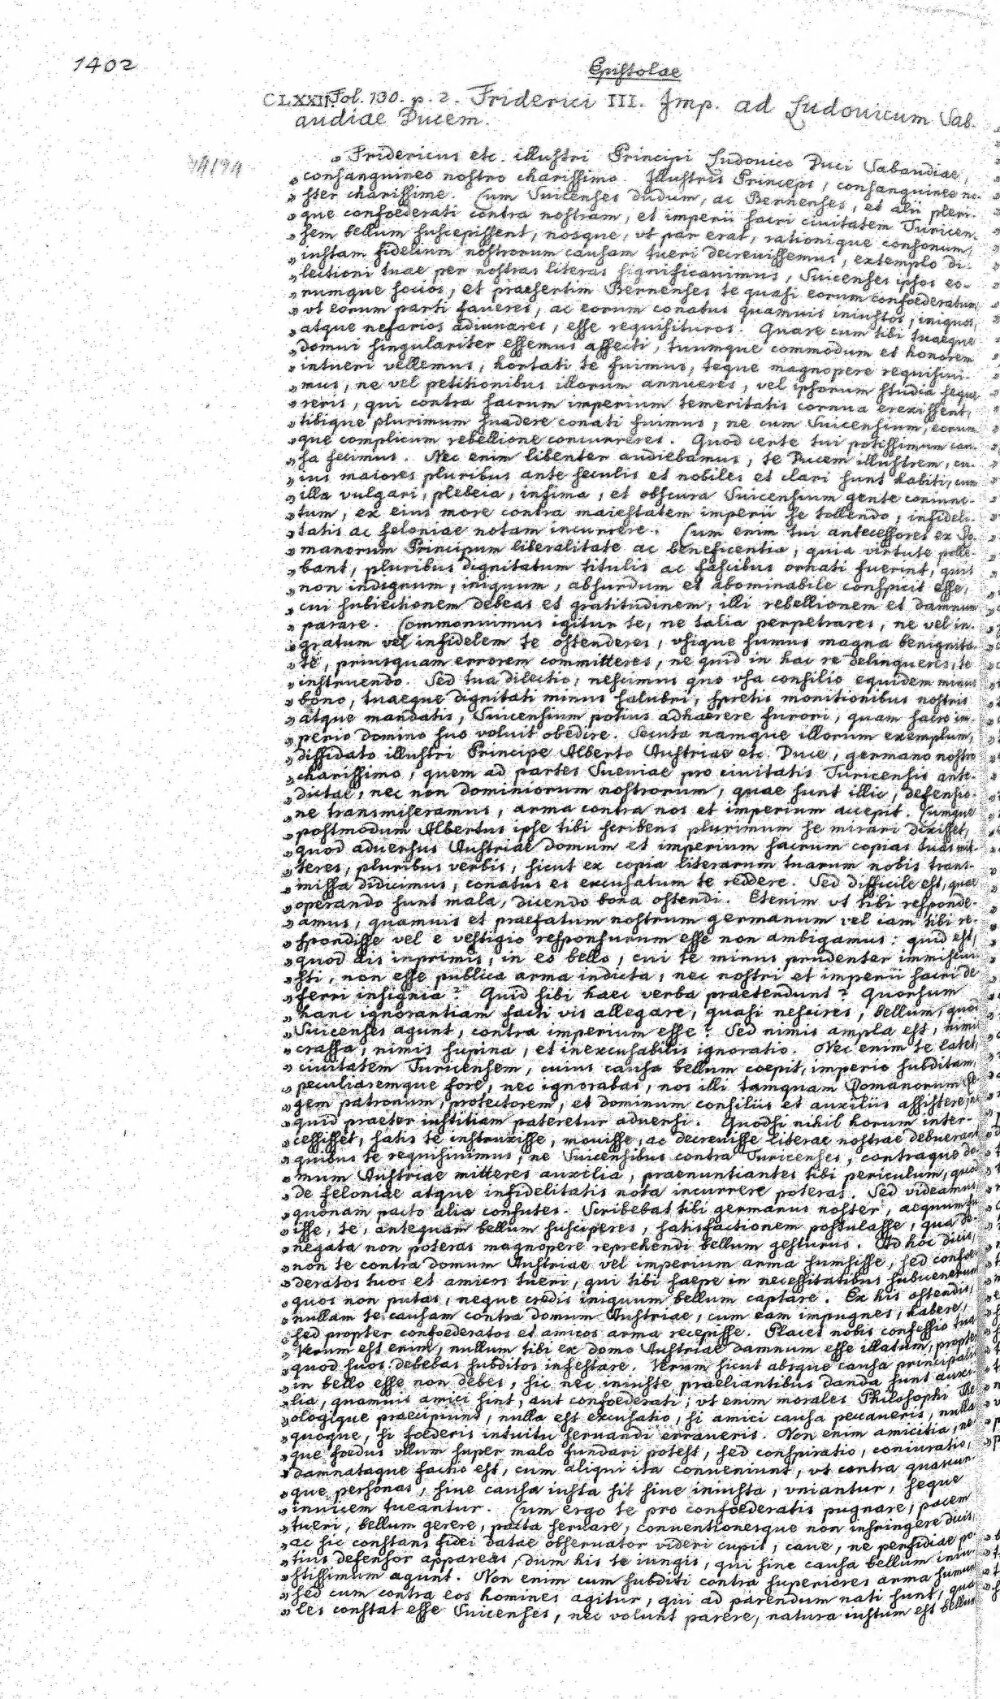 1402
Epistolae
CLXXII. Fol. 130. p. 2. Friderici III. Imp. ad Ludovicum Sab-
audiae Ducem.
„Fridericus etc. illustri Principi Ludovico Duci Sabaudiae,
„consanguineo nostro charissimo. Illustris Princeps, consanguinee no-
„ster charissime. Cum Suicenses dudum, ac Bernenses, et alii pleri-
„que confoederati contra nostram, et imperii sacri civitatem Turicen-
„sem bellum suscepissent, nosque, vt par erat, rationique consonum,
„iustam fidelium nostrorum causam tueri decrevissemus, extemplo di-
„lectioni tuae per nostras literas significauimus, Suicenses ipsos eo-
„rumque socios, et praesertim Bernenses te quasi eorum confoederatum
„vt eorum parti faueres, ac eorum conatus quamuis iniustos, iniquos,
„atque nefarios adiuuares, esse requisituros. Quare cum tibi tuaeque
„domui singulariter essemus affecti, tuumque commodum et honorem
„intueri vellemus, hortati te fuimus, teque magnopere requisiui-
„mus, ne vel petitionibus illorum annueres, vel ipsorum studia seque-
„reris, qui contra sacrum imperium temeritatis cornua erexissent,
„tibique plurimum suadere conati fuimus, ne cum Suicensium, eorum-
„que complicum rebellione concurreres. Quod certe tui potissimum cau-
„sa fecimus. Nec enim libenter audiebamus, te Ducem illustrem, cu-
„ius maiores pluribus ante seculis et nobiles et clari sunt habiti, cum
„illa vulgari, plebeia, infima, et obscura Suicensium gente coniunc-
„tum, ex eius more contra maiestatem imperii se tollendo, infideli-
„tatis ac feloniae notam incurrere. Cum enim tui antecessores ex Ro-
„manorum Principum liberalitate ac beneficentia, quia virtute polle-
„bant, pluribus dignitatum titulis ac fascibus ornati fuerint, quis
„non indignum, iniquum, absurdum et abominabile conspicit esse,
„cui subiectionem debeas et gratitudinem, illi rebellionem et damnum
„parare. Commonuimus igitur te, ne talia perpetrares, ne vel in-
„gratum vel infidelem te ostenderes, vsique sumus magna benignita-
„te, priusquam errorem committeres, ne quid in hac re delinqueris, te
„instruendo. Sed tua dilectio, nescimus quo vsa consilio equidem minus
„bono, tuaeque dignitati minus salubri, spretis monitionibus nostris
„atque mandatis, Suicensium potius adhaerere furori, quam sacro im-
„perio domino suo voluit obedire. Secuta namque illorum exemplum,
„diffidato illustri Principe Alberto Austriae etc. Duce, germano nostro
„charissimo, quem ad partes Sueuiae pro ciuitatis Turicensis ante-
„dictae, nec non dominiorum nostrorum, quae sunt illic, defensio-
„ne transmiseramus, arma contra nos et imperium accepit. Cumque
„postmodum Albertus ipse tibi scribens plurimum se mirari dixisset,
„quod aduersus Austriae domum et imperium sacrum copias tuas mit-
„teres, pluribus verbis, sicut ex copia literarum tuarum nobis trans-
„missa didicimus, conatus es excusatum te reddere. Sed difficile est, quae
„operando sunt mala, dicendo bona ostendi. Etenim vt tibi responde-
„amus, quamuis et praefatum nostrum germanum vel iam tibi re-
„spondisse vel e vestigio responsurum esse non ambigamus: quid est,
„quod ais inprimis, in eo bello, cui te minus prudenter immiscui-
„sti, non esse publica arma indicta, nec nostri et imperii sacri de-
„ferri insignia? Quid sibi haec verba praetendunt? Quorsum
„hanc ignorantiam facti vis allegare, quasi nescires, bellum, quod
„Suicenses agunt, contra imperium esse? Sed nimis ampla est, nimis
„crassa, nimis supina, et inexcusabilis ignoratio. Nec enim te latet,
„ciuitatem Turicensem, cuius causa bellum coepit, imperio subditam,
„peculiaremque fore, nec ignorabas, nos illi tamquam Romanorum Re-
„gem patronum, protectorem, et dominum consiliis et auxiliis assistere, ne
„quid praeter iustitiam pateretur aduersi. Quodsi nihil horum inter-
„cessisset, satis te instruxisse, mouisse, ac decreuisse literae nostrae debuerant
„quibus te requisiuimus, ne Suicensibus contra Turicenses, contraque do-
„mum Austriae mitteres auxilia, praenuntiantes tibi periculum, quo
„de feloniae atque infidelitatis nota incurrere poteras. Sed videamus
„quonam pacto alia confutes. Scribebat tibi germanus noster, aequum fu-
„isse, te, antequam bellum susciperes, satisfactionem postulasse, qua de-
„negata non poteras magnopere reprehendi bellum gesturus. Ad hoc dicis,
„non te contra domum Austriae vel imperium arma sumsisse, sed confoe-
„deratos tuos et amicos tueri, qui tibi saepe in necessitatibus subuenerunt
„quos non putas, neque credis iniquum bellum captare. Ex his ostendis,
„nullam te causam contra domum Austriae, cum eam impugnes, habere,
„sed propter confoederatos et amicos arma recepisse. Placet nobis confessio tua
„Verum est enim, nullum tibi ex domo Austriae damnum esse illatum, propter
„quod suos debebas subditos infestare. Verum sicut absque causa principalis
„in bello esse non debes, sic nec iniuste praeliantibus danda sunt auxi-
„lia, quamuis amici sint, aut confoederati, vt enim morales Philosophi The-
„ologique praecipiunt, nulla est excusatio, si amici causa peccaueris, nulla
„quoque, si foederis intuitu seruandi erraueris. Non enim amicitia, ne-
„que foedus vllum super malo fundari potest, sed conspiratio, coniuratio,
„damnataque factio est, cum aliqui ita conueniunt, vt contra quascun-
„que personas, siue causa iusta sit siue iniusta, vniantur, seque
„inuicem tueantur. Cum ergo te pro confoederatis pugnare, pacem
„tueri, bellum gerere, pacta seruare, conuentionesque non infringere dicis,
„ac sic constans fidei datae obseruator videri cupis, caue, ne perfidiae po-
„tius defensor appareas, dum his te iungis, qui sine causa bellum iniu-
„stissimum agunt. Non enim cum subditi contra superiores arma sumunt
„sed cum contra eos homines agitur, qui ad parendum nati sunt, qua-
„les constat esse Suicenses, nec volunt parere, natura iustum est bellum